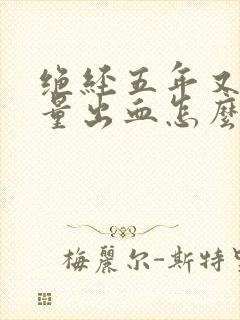 绝经五年又
量出血怎麼
梅麗尔-斯特